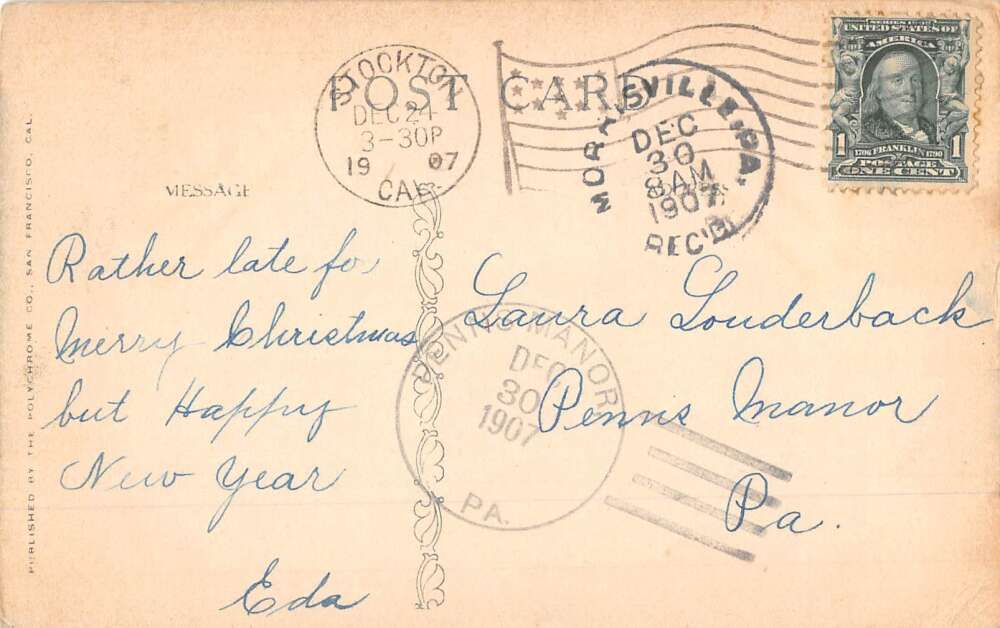 POST CARD
STOCKTON
DEC 24
3-30P
19 07
CAL.
MORRISVILLE, PA.
DEC
30
8 AM
1907
REC'D.
SERIES 1902
UNITED STATES OF
AMERICA
1706 FRANKLIN 1790
1 1
POSTAGE
ONE CENT
MESSAGE
Rather late for
Merry Christmas
but Happy
New Year
Eda
Laura Louderback
Penns Manor
Pa.
PENNS MANOR
DEC
30
1907
PA.
PUBLISHED BY THE POLYCHROME CO., SAN FRANCISCO, CAL.